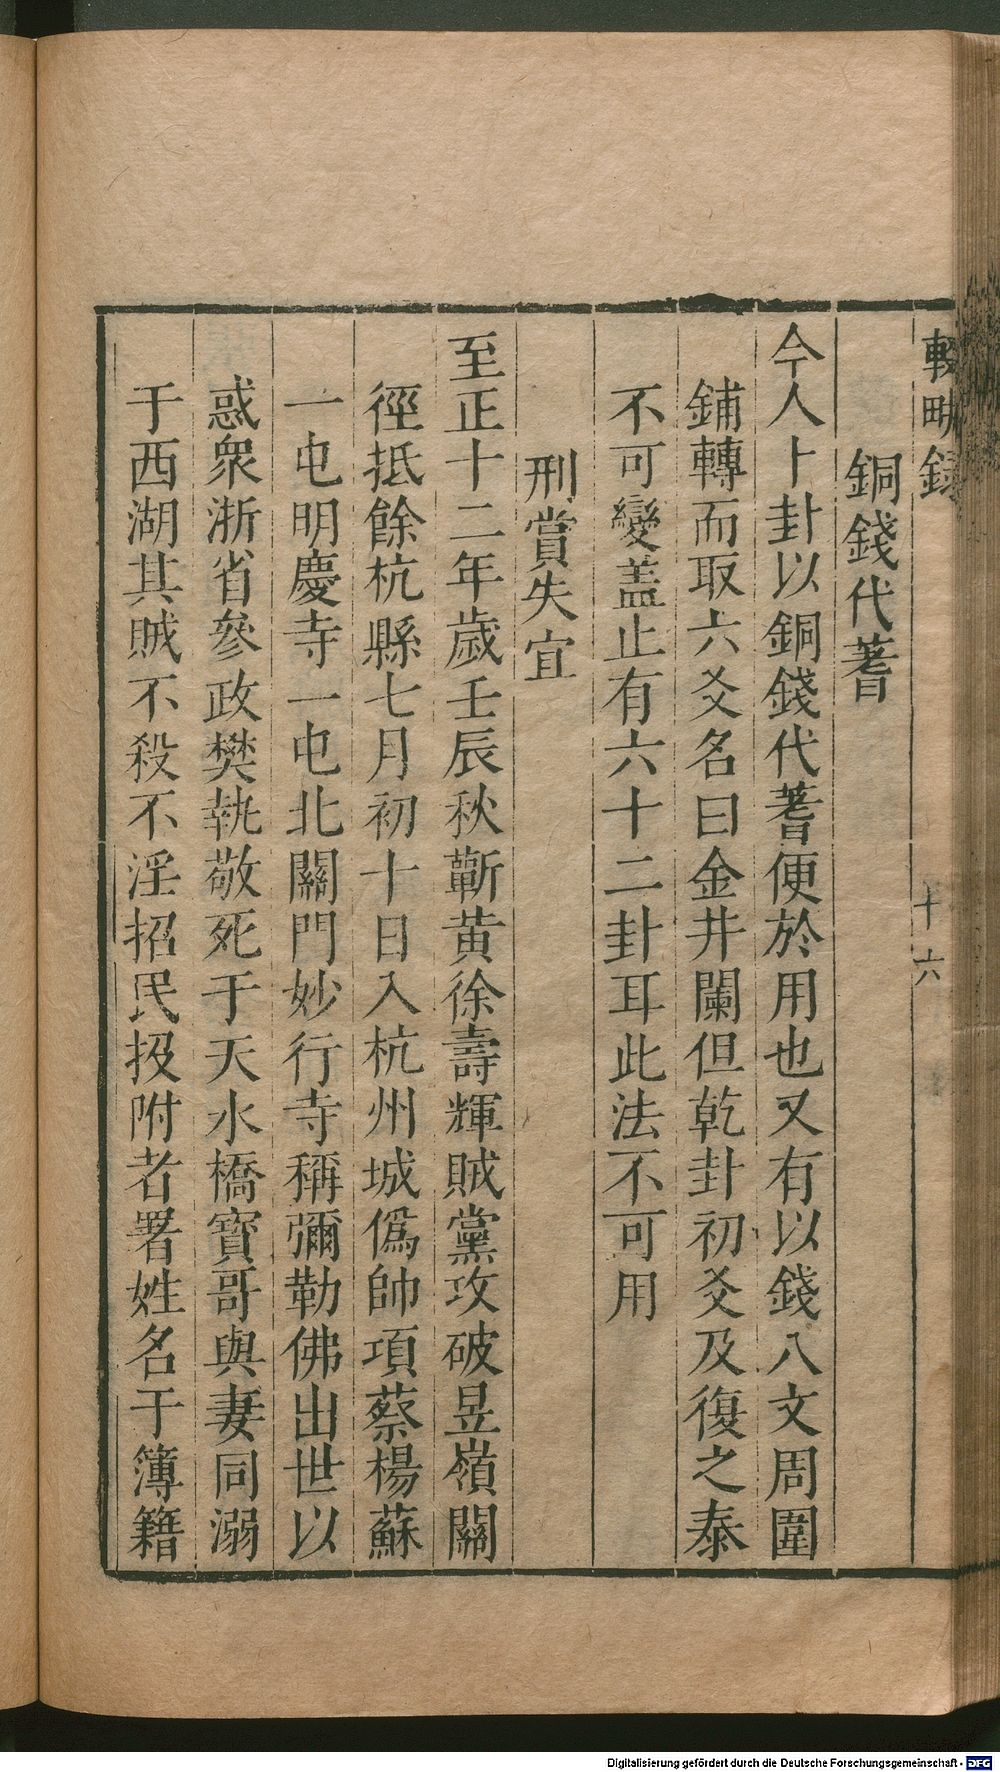 輟畊錄
十六
銅錢代蓍
今人卜卦以銅錢代蓍便於用也又有以錢八文周圍
鋪轉而取六爻名曰金井闌但乾卦初爻及復之泰
不可變盖止有六十二卦耳此法不可用
刑賞失宜
至正十二年歲壬辰秋蘄黃徐壽輝賊黨攻破昱嶺關
徑抵餘杭縣七月初十日入杭州城僞帥項蔡楊蘇
一屯明慶寺一屯北關門妙行寺稱彌勒佛出世以
惑衆浙省參政樊執敬死于天水橋寶哥與妻同溺
于西湖其賊不殺不淫招民投附者署姓名于簿籍
Digitalisierung gefördert durch die Deutsche Forschungsgemeinschaft - DFG